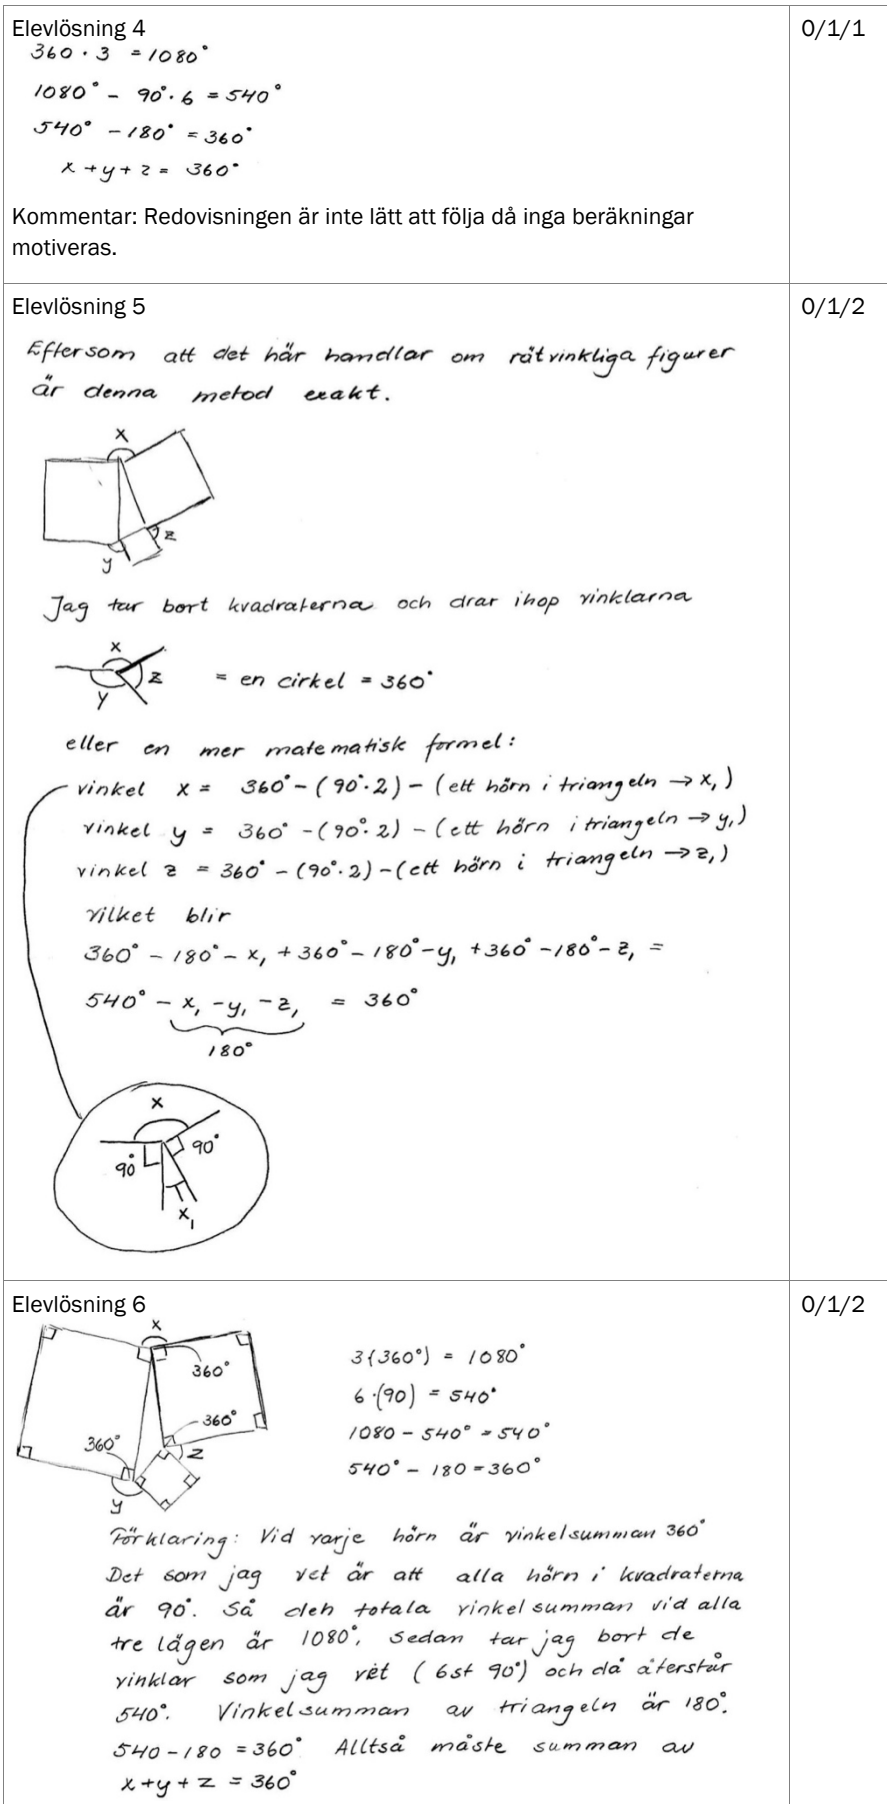 Elevlösning 4
0/1/1
360 · 3 = 1080°
1080° - 90° · 6 = 540°
540° - 180° = 360°
x + y + z = 360°
Kommentar: Redovisningen är inte lätt att följa då inga beräkningar
motiveras.
Elevlösning 5
0/1/2
Eftersom att det här handlar om rätvinkliga figurer
är denna metod exakt.
x
z
y
Jag tar bort kvadraterna och drar ihop vinklarna
x
z
y
= en cirkel = 360°
eller en mer matematisk formel:
vinkel x = 360° - (90° · 2) - (ett hörn i triangeln → x₁)
vinkel y = 360° - (90° · 2) - (ett hörn i triangeln → y₁)
vinkel z = 360° - (90° · 2) - (ett hörn i triangeln → z₁)
vilket blir
360° - 180° - x₁ + 360° - 180° - y₁ + 360° - 180° - z₁ =
540° - x₁ - y₁ - z₁ = 360°
180°
x
90°
90°
x₁
Elevlösning 6
0/1/2
x
360°
360°
360°
z
y
3(360°) = 1080°
6 · (90) = 540°
1080 - 540° = 540°
540° - 180 = 360°
Förklaring: Vid varje hörn är vinkelsumman 360°
Det som jag vet är att alla hörn i kvadraterna
är 90°. Så den totala vinkelsumman vid alla
tre lägen är 1080°. Sedan tar jag bort de
vinklar som jag vet (6st 90°) och då återstår
540°. Vinkelsumman av triangeln är 180°.
540 - 180 = 360° Alltså måste summan av
x + y + z = 360°